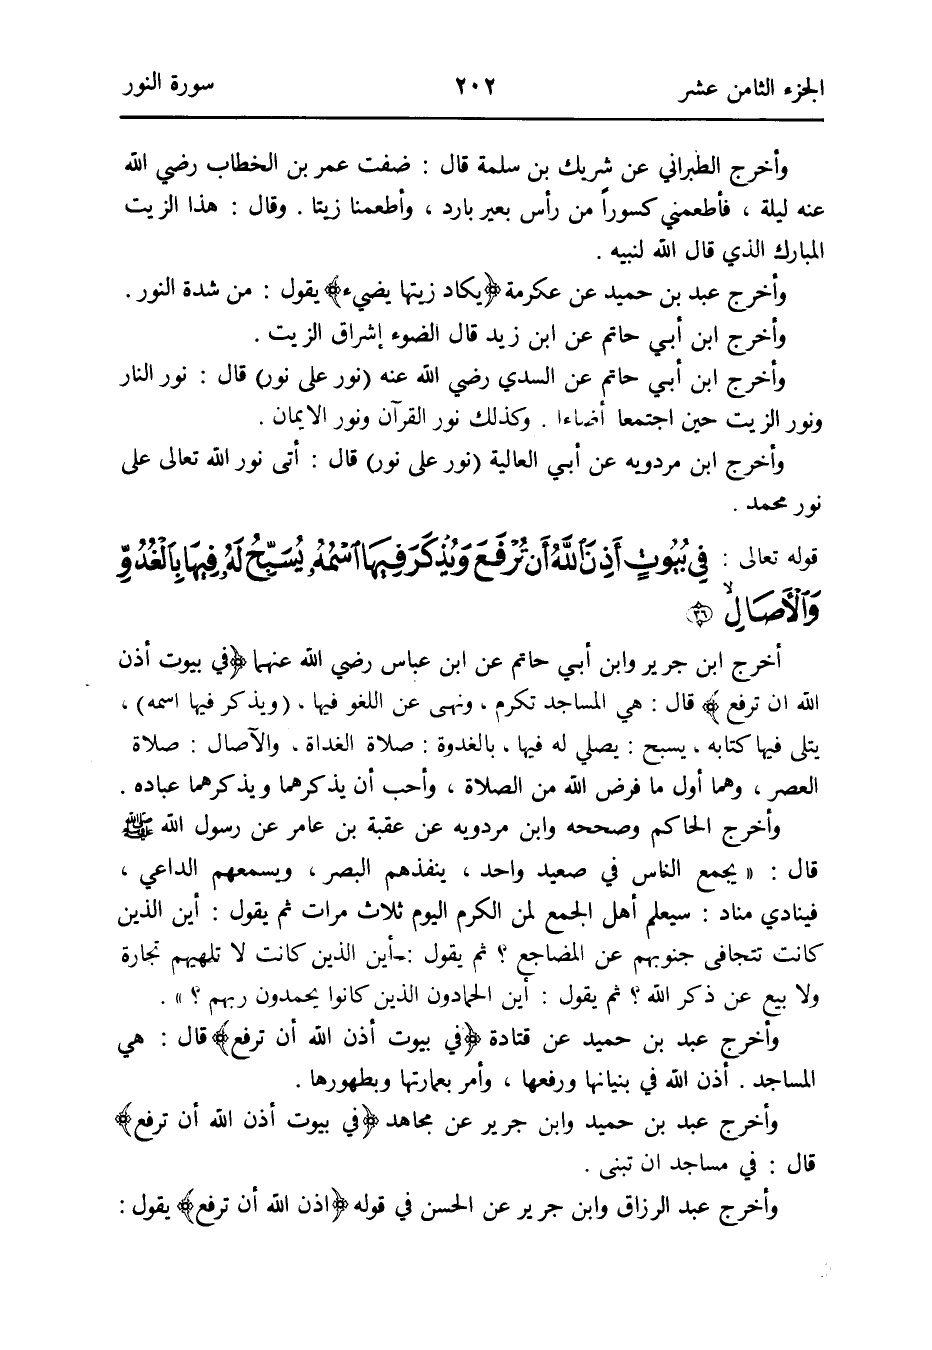 الجزء الثامن عشر ٢٠٢ سورة النور
وأخرج الطبراني عن شريك بن سلمة قال : ضفت عمر بن الخطاب رضي الله
عنه ليلة ، فأطعمني كسوراً من رأس بعير بارد ، وأطعمنا زيتا . وقال : هذا الزيت
المبارك الذي قال الله لنبيه .
وأخرج عبد بن حميد عن عكرمة ﴿يكاد زيتها يضيء﴾ يقول : من شدة النور .
وأخرج ابن أبي حاتم عن ابن زيد قال الضوء إشراق الزيت .
وأخرج ابن أبي حاتم عن السدي رضي الله عنه (نور على نور) قال : نور النار
ونور الزيت حين اجتمعا أضاءا . وكذلك نور القرآن ونور الايمان .
وأخرج ابن مردويه عن أبي العالية (نور على نور) قال : أتى نور الله تعالى على
نور محمد .
قوله تعالى : فِي بُيُوتٍ أَذِنَ ٱللَّهُ أَن تُرْفَعَ وَيُذْكَرَ فِيهَا ٱسْمُهُۥ يُسَبِّحُ لَهُۥ فِيهَا بِٱلْغُدُوِّ
وَٱلْأَصَالِ ۙ ٣٦
أخرج ابن جرير وابن أبي حاتم عن ابن عباس رضي الله عنهما ﴿في بيوت أذن
الله ان ترفع ﴾ قال : هي المساجد تكرم ، ونهى عن اللغو فيها ، (ويذكر فيها اسمه) ،
يتلى فيها كتابه ، يسبح : يصلي له فيها ، بالغدوة : صلاة الغداة ، والآصال : صلاة
العصر ، وهما أول ما فرض الله من الصلاة ، وأحب أن يذكرهما ويذكرهما عباده .
وأخرج الحاكم وصححه وابن مردويه عن عقبة بن عامر عن رسول الله ﷺ
قال : « يجمع الناس في صعيد واحد ، ينفذهم البصر ، ويسمعهم الداعي ،
فينادي مناد : سيعلم أهل الجمع لمن الكرم اليوم ثلاث مرات ثم يقول : أين الذين
كانت تتجافى جنوبهم عن المضاجع ؟ ثم يقول :-أين الذين كانت لا تلهيهم تجارة
ولا بيع عن ذكر الله ؟ ثم يقول : أين الحمادون الذين كانوا يحمدون ربهم ؟ » .
وأخرج عبد بن حميد عن قتادة ﴿في بيوت أذن الله أن ترفع﴾ قال : هي
المساجد . أذن الله في بنيانها ورفعها ، وأمر بعمارتها وبطهورها .
وأخرج عبد بن حميد وابن جرير عن مجاهد ﴿في بيوت أذن الله أن ترفع﴾
قال : في مساجد ان تبنى .
وأخرج عبد الرزاق وابن جرير عن الحسن في قوله ﴿اذن الله أن ترفع﴾ يقول :